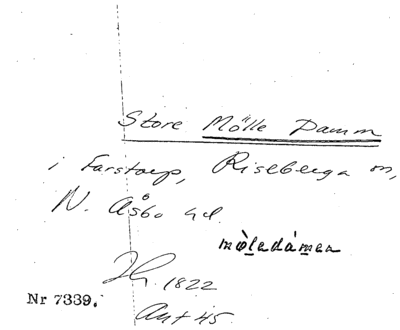 Store Mölle Damm
i Farstorp, Riseberga sn,
N. Åsbo hd.
mòledámen
Jh. 1822
Nr 7339.
Ant 45